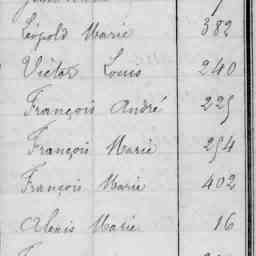 Léopold Marie 382
Victor Louis 240
François André 225
François Marie 254
François Marie 402
Alexis Marie 16